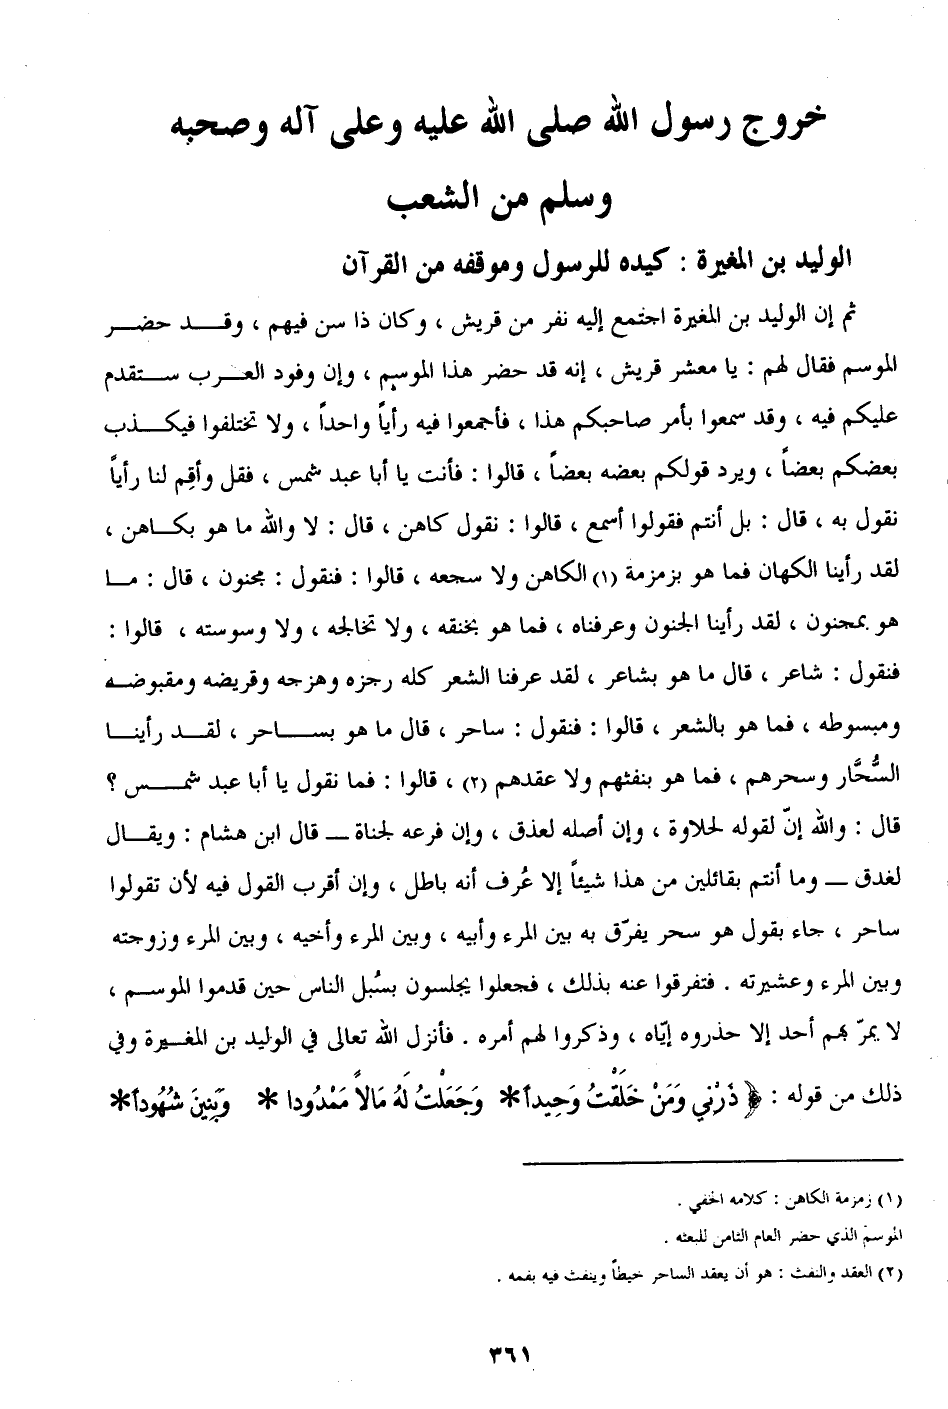 خروج رسول الله صلى الله عليه وعلى آله وصحبه
وسلم من الشعب
الوليد بن المغيرة : كيده للرسول وموقفه من القرآن
ثم إن الوليد بن المغيرة اجتمع إليه نفر من قريش ، وكان ذا سن فيهم ، وقد حضر
الموسم فقال لهم : يا معشر قريش ، إنه قد حضر هذا الموسم ، وإن وفود العرب ستقدم
عليكم فيه ، وقد سمعوا بأمر صاحبكم هذا ، فأجمعوا فيه رأياً واحداً ، ولا تختلفوا فيكذب
بعضكم بعضاً ، ويرد قولكم بعضه بعضاً ، قالوا : فأنت يا أبا عبد شمس ، فقل وأقِم لنا رأياً
نقول به ، قال : بل أنتم فقولوا أسمع ، قالوا : نقول كاهن ، قال : لا والله ما هو بكاهن ،
لقد رأينا الكهان فما هو بزمزمة (١) الكاهن ولا سجعه ، قالوا : فنقول : مجنون ، قال : ما
هو بمجنون ، لقد رأينا الجنون وعرفناه ، فما هو بخنقه ، ولا تخالجه ، ولا وسوسته ، قالوا :
فنقول : شاعر ، قال ما هو بشاعر ، لقد عرفنا الشعر كله رجزه وهزجه وقريضه ومقبوضه
ومبسوطه ، فما هو بالشعر ، قالوا : فنقول : ساحر ، قال ما هو بساحر ، لقد رأينا
السُّحَّار وسحرهم ، فما هو بنفثهم ولا عقدهم (٢) ، قالوا : فما نقول يا أبا عبد شمس ؟
قال : والله إنّ لقوله لحلاوة ، وإن أصله لعذق ، وإن فرعه لجناة ـ قال ابن هشام : ويقال
لغدق ـ وما أنتم بقائلين من هذا شيئاً إلا عُرف أنه باطل ، وإن أقرب القول فيه لأن تقولوا
ساحر ، جاء بقول هو سحر يفرّق به بين المرء وأبيه ، وبين المرء وأخيه ، وبين المرء وزوجته
وبين المرء وعشيرته . فتفرقوا عنه بذلك ، فجعلوا يجلسون بسُبل الناس حين قدموا الموسم ،
لا يمرّ بهم أحد إلا حذروه إيّاه ، وذكروا لهم أمره . فأنزل الله تعالى في الوليد بن المغيرة وفي
ذلك من قوله : ﴿ ذَرْنِي وَمَنْ خَلَقْتُ وَحِيداً* وَجَعَلْتُ لَهُ مَالاً مَمْدُودا * وَبَنِينَ شُهُوداً*
(١) زمزمة الكاهن : كلامه الخفي .
الموسم الذي حضر العام الثامن للبعثه .
(٢) العقد والنفث : هو أن يعقد الساحر خيطاً وينفث فيه بفمه .
٣٦١